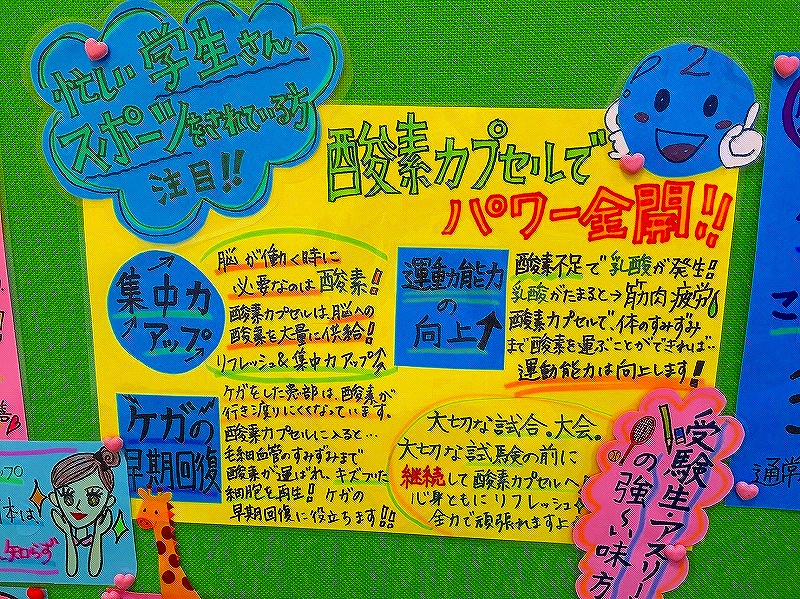 忙しい学生さん、
スポーツをされている方
注目!!
O2
酸素カプセルで
パワー全開!!
集中力
アップ
脳が働く時に
必要なのは酸素!
酸素カプセルは、脳への
酸素を大量に供給!
リフレッシュ&集中力アップ↑
運動能力
の
向上↑
酸素不足で乳酸が発生!
乳酸がたまると→筋肉疲労
酸素カプセルで、体のすみずみ
まで酸素を運ぶことができれば…
運動能力は向上します!
ケガの
早期回復
ケガをした患部は、酸素が
行き渡りにくくなっています。
酸素カプセルに入ると…
毛細血管のすみずみまで
酸素が運ばれ、キズついた
細胞を再生! ケガの
早期回復に役立ちます!!
大切な試合、大会、
大切な試験の前に
継続して酸素カプセルへ
心身ともにリフレッシュ
全力で頑張れますよ
受験生・アスリー
の強〜い味方
ップ
体は!
知らず
通常